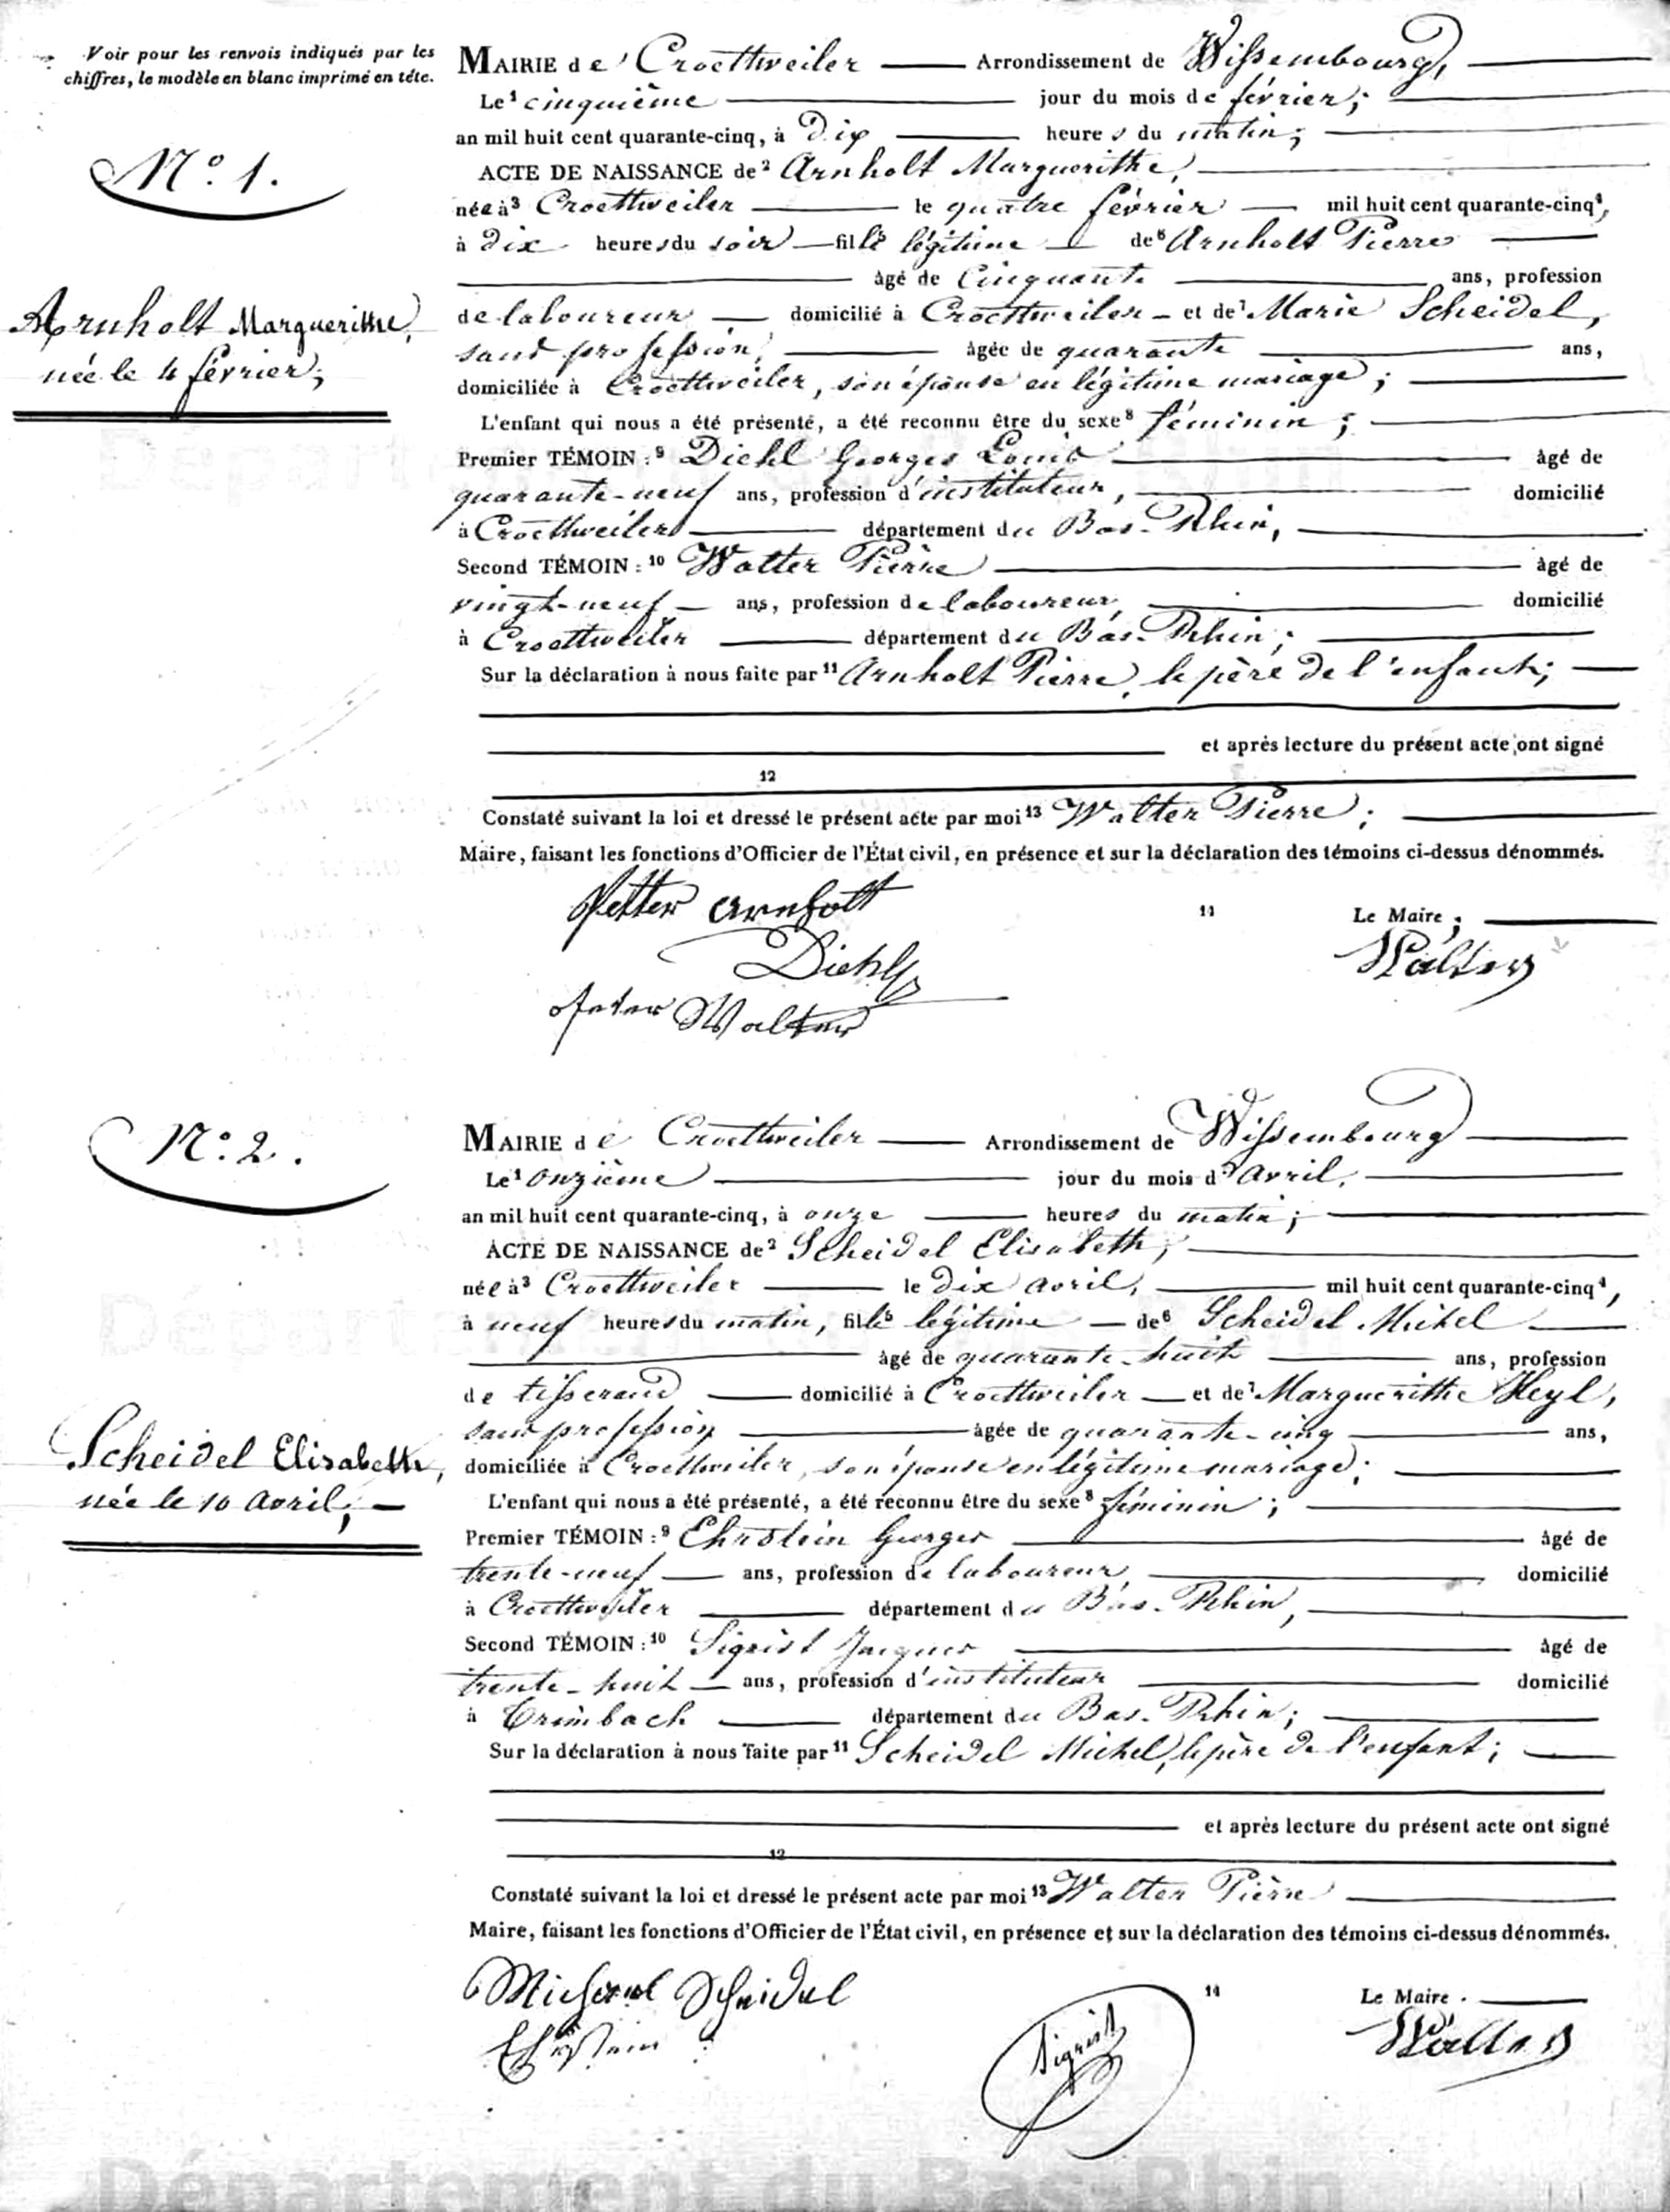 Voir pour les renvois indiqués par les
chiffres, le modèle en blanc imprimé en tête.
MAIRIE de Croettweiler Arrondissement de Wissembourg,
Le 1 cinquième jour du mois de février;
an mil huit cent quarante-cinq, à dix heures du matin;
N° 1.
ACTE DE NAISSANCE de 2 Arnholt Marguerithe,
née à 3 Croettweiler le quatre février mil huit cent quarante-cinq 4,
à dix heures du soir fille 5 légitime de 6 Arnholt Pierre
âgé de cinquante ans, profession
Arnholt Marguerithe,
née le 4 février;
de laboureur domicilié à Croettweiler et de 7 Marie Scheidel,
sans profession, âgée de quarante ans,
domiciliée à Croettweiler, son épouse en légitime mariage;
L'enfant qui nous a été présenté, a été reconnu être du sexe 8 féminin;
Premier TÉMOIN: 9 Diehl Georges Louis âgé de
quarante-neuf ans, profession d'instituteur, domicilié
à Croettweiler département du Bas-Rhin,
Second TÉMOIN: 10 Walter Pierre âgé de
vingt-neuf ans, profession de laboureur, domicilié
à Croettweiler département du Bas-Rhin;
Sur la déclaration à nous faite par 11 Arnholt Pierre, le père de l'enfant;
et après lecture du présent acte ont signé
12
Constaté suivant la loi et dressé le présent acte par moi 13 Walter Pierre;
Maire, faisant les fonctions d'Officier de l'État civil, en présence et sur la déclaration des témoins ci-dessus dénommés.
Petter Arnholt
14 Le Maire;
Diehl
Walter
Peter Walter
N° 2.
MAIRIE de Croettweiler Arrondissement de Wissembourg
Le 1 onzième jour du mois d'avril,
an mil huit cent quarante-cinq, à onze heures du matin;
ACTE DE NAISSANCE de 2 Scheidel Elisabeth,
née à 3 Croettweiler le dix avril, mil huit cent quarante-cinq 4,
à neuf heures du matin, fille 5 légitime de 6 Scheidel Michel
âgé de quarante-huit ans, profession
de tisserand domicilié à Croettweiler et de 7 Marguerithe Heyl,
Scheidel Elisabeth,
née le 10 avril;
sans profession âgée de quarante-cinq ans,
domiciliée à Croettweiler, son épouse en légitime mariage;
L'enfant qui nous a été présenté, a été reconnu être du sexe 8 féminin;
Premier TÉMOIN: 9 Ehrstein Georges âgé de
trente-neuf ans, profession de laboureur, domicilié
à Croettweiler département du Bas-Rhin,
Second TÉMOIN: 10 Sigrist Jacques âgé de
trente-huit ans, profession d'instituteur domicilié
à Trimbach département du Bas-Rhin;
Sur la déclaration à nous faite par 11 Scheidel Michel, le père de l'enfant;
et après lecture du présent acte ont signé
12
Constaté suivant la loi et dressé le présent acte par moi 13 Walter Pierre
Maire, faisant les fonctions d'Officier de l'État civil, en présence et sur la déclaration des témoins ci-dessus dénommés.
Michael Scheidel
14 Le Maire.
Ehrstein
Sigrist
Walter
Département du Bas-Rhin